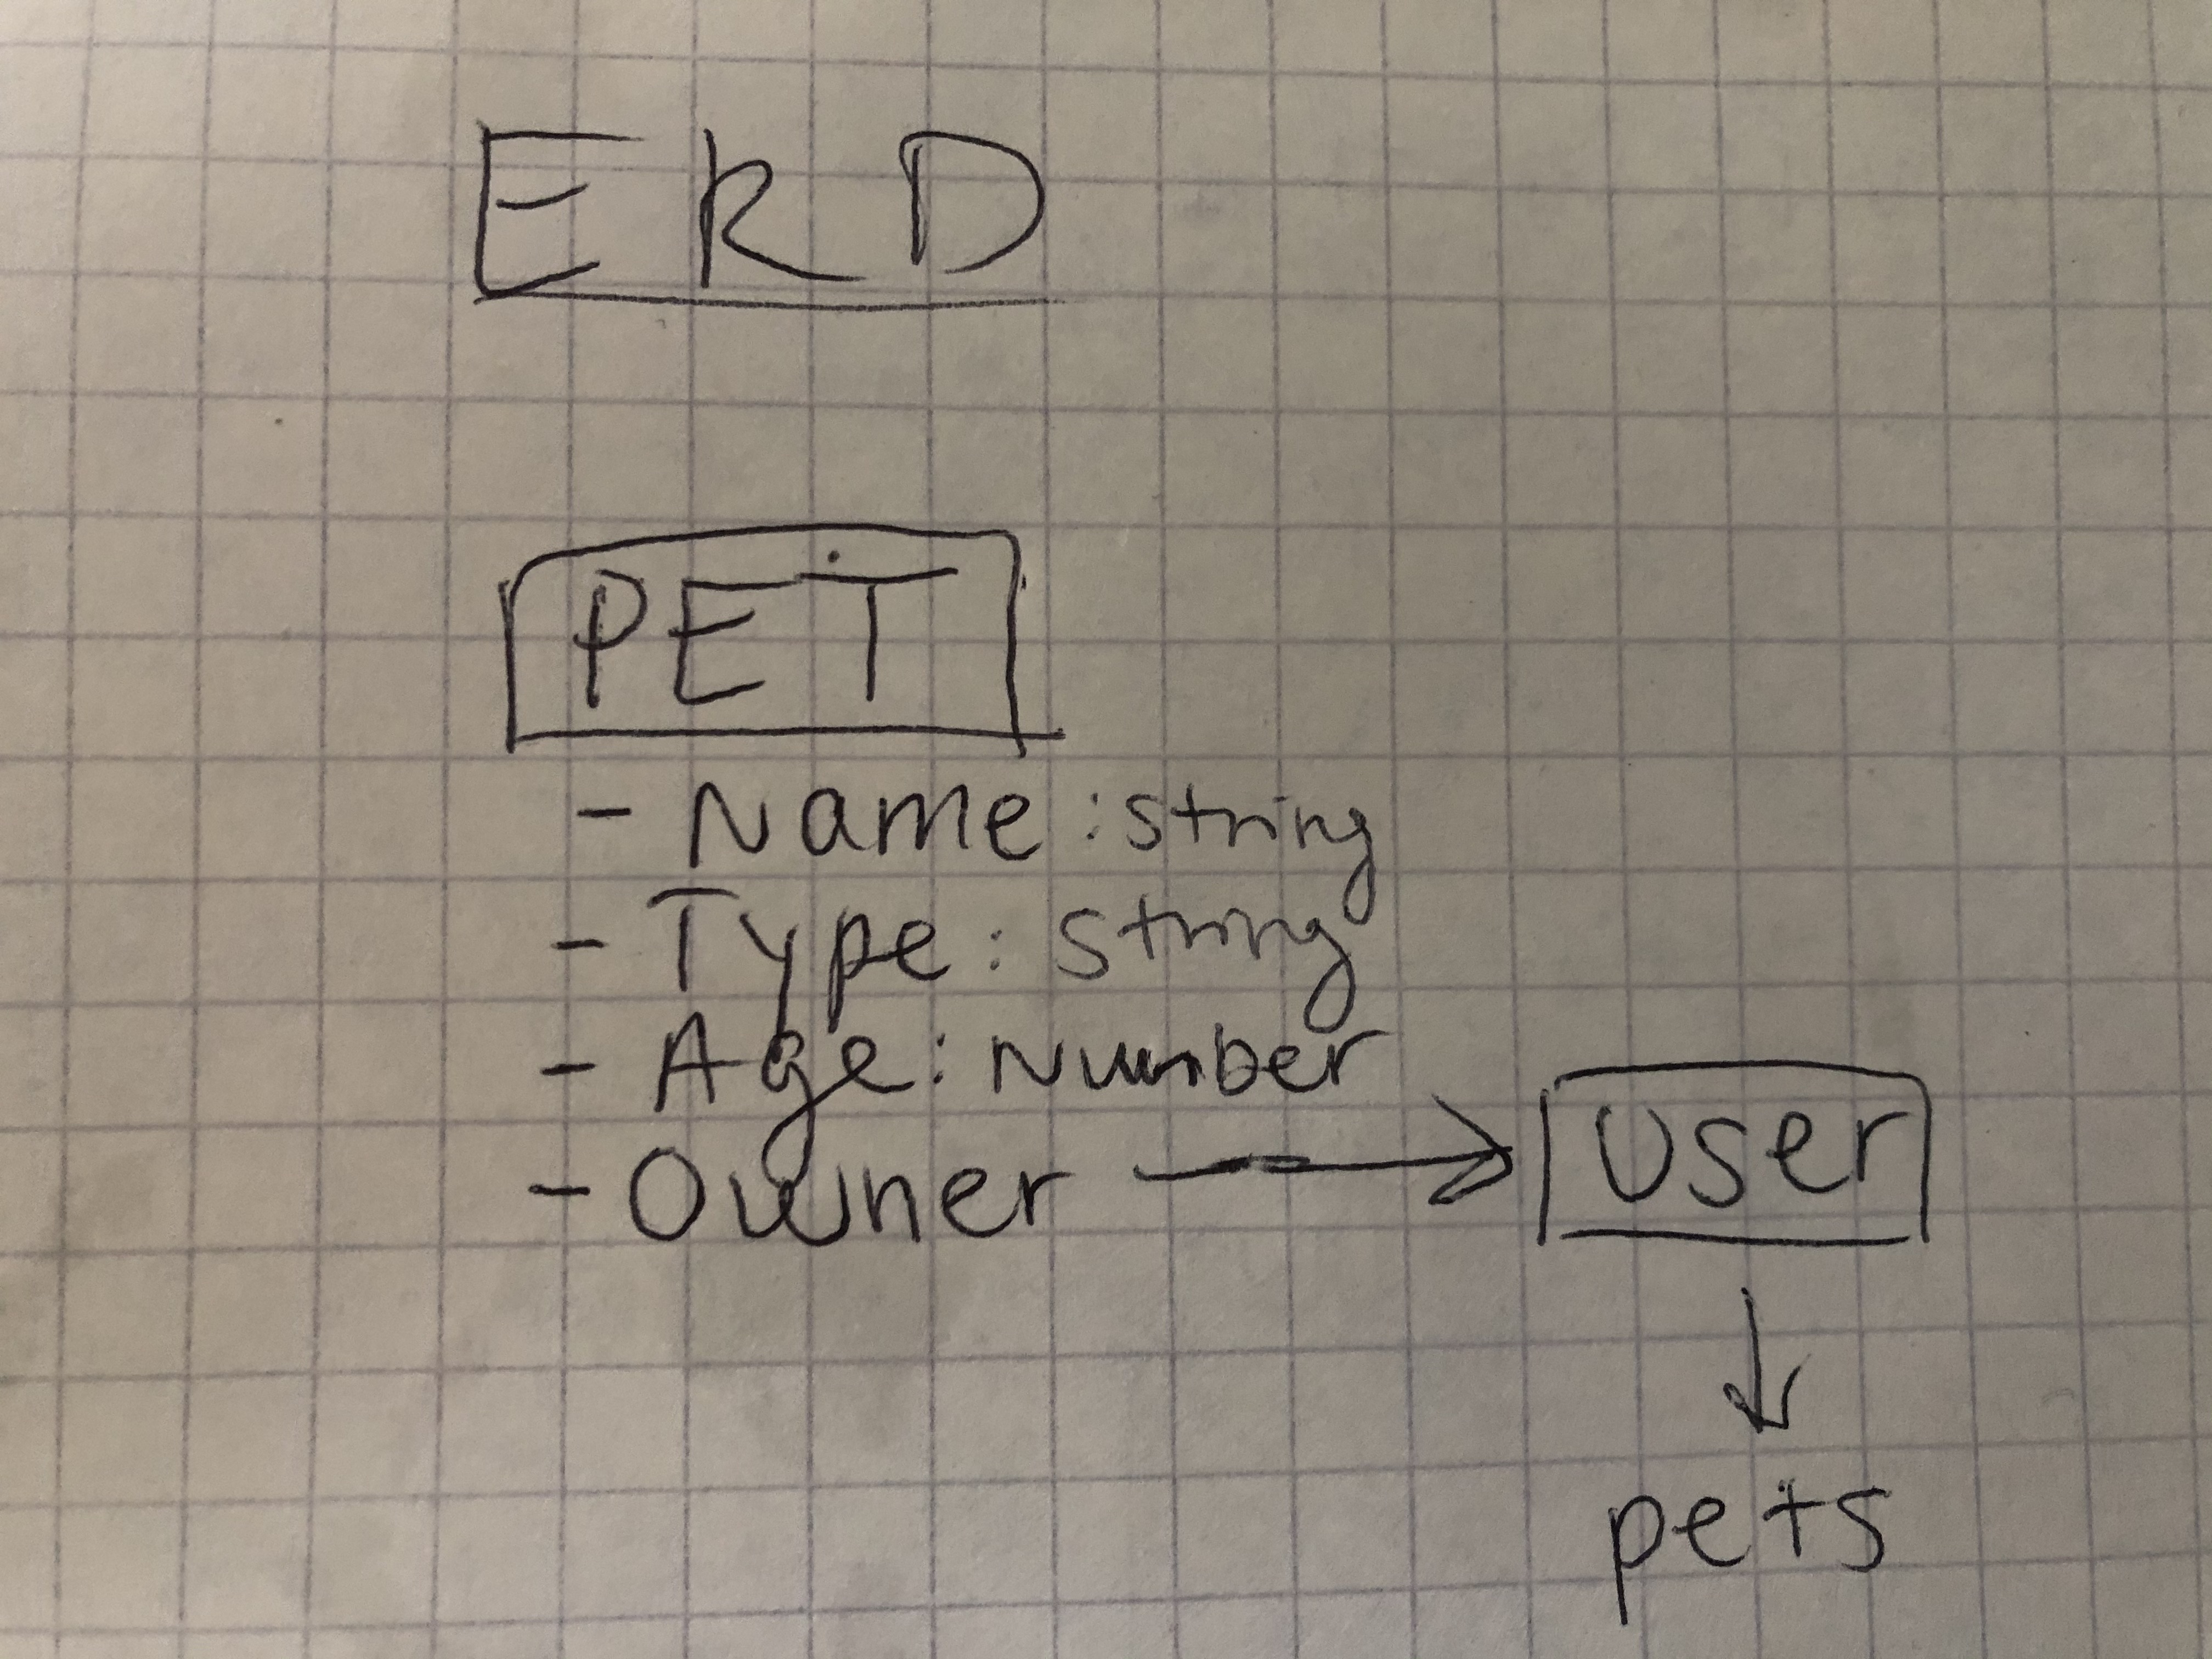 ERD
PET
- Name : string
- Type : string
- Age : number
- Owner → User
↓
pets